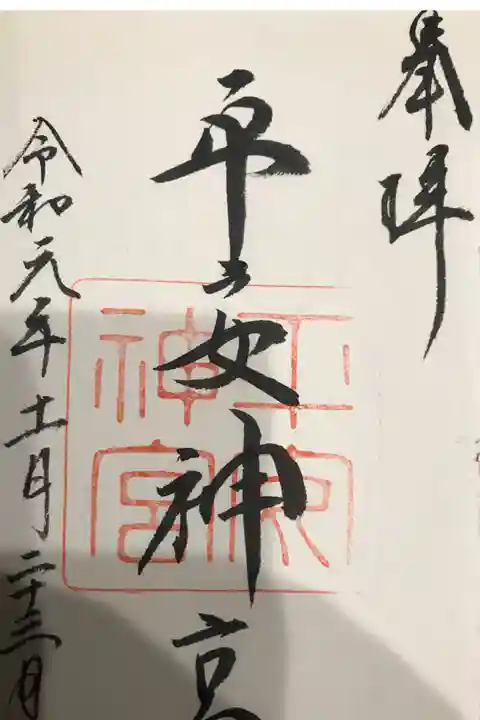 奉拝
平安神宮
平安神宮
令和元年十一月二十三日